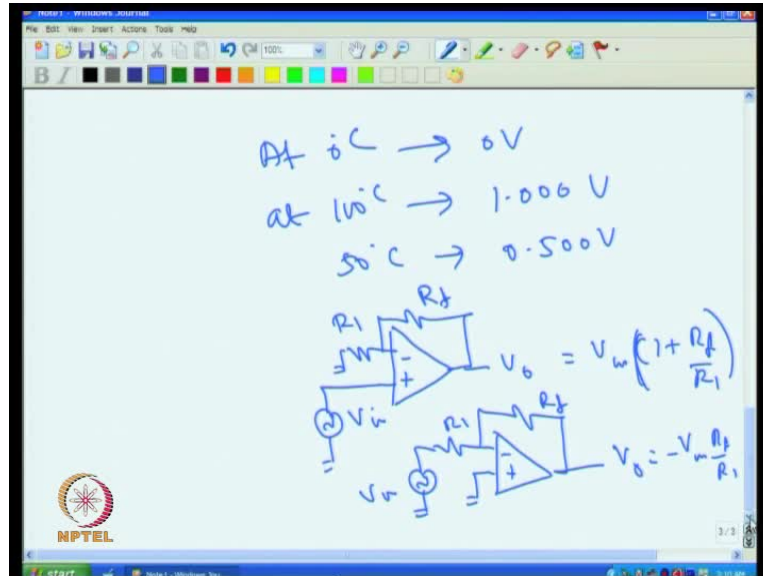 Note1 - Windows Journal
File Edit View Insert Actions Tools Help
100%
B I
At 0°C → 0V
at 100°C → 1.000 V
50°C → 0.500V
Rf
R1
-
+
V0 = Vin (1 + Rf/R1)
Vin
Rf
R1
-
+
Vin
V0 = -Vin Rf/R1
NPTEL
3/3
start
Note1 - Windows Jou...
3:10 AM